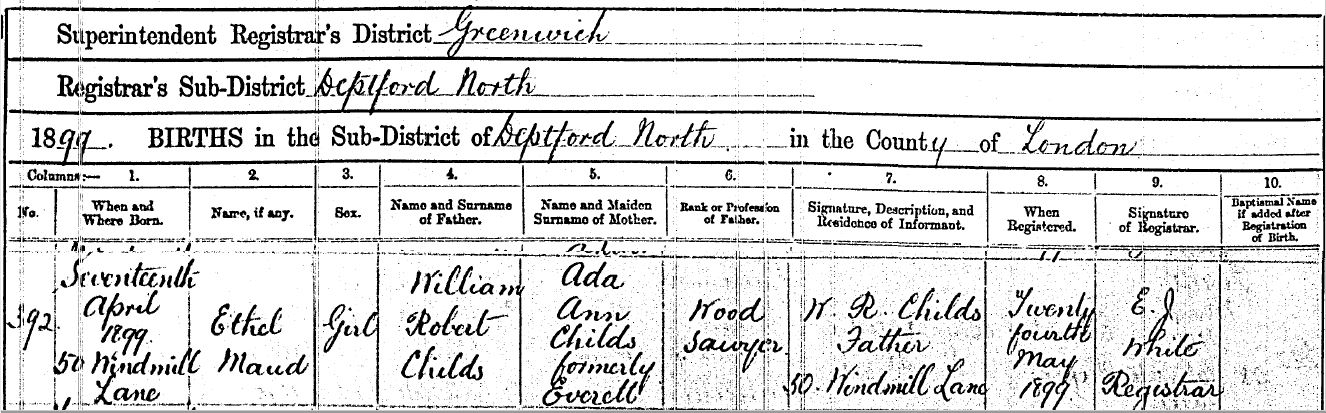 Superintendent Registrar's District Greenwich
Registrar's Sub-District Deptford North
1899. BIRTHS in the Sub-District of Deptford North in the County of London
Columns:— 1. 2. 3. 4. 5. 6. 7. 8. 9. 10.
No. When and Where Born. Name, if any. Sex. Name and Surname of Father. Name and Maiden Surname of Mother. Rank or Profession of Father. Signature, Description, and Residence of Informant. When Registered. Signature of Registrar. Baptismal Name if added after Registration of Birth.
Seventeenth William Ada
392 April Ethel Girl Robert Ann Wood W. R. Childs Twenty E. J.
1899 Maud Childs Childs Sawyer Father fourth White
50 Windmill formerly May
Lane Everett 50 Windmill Lane 1899 Registrar